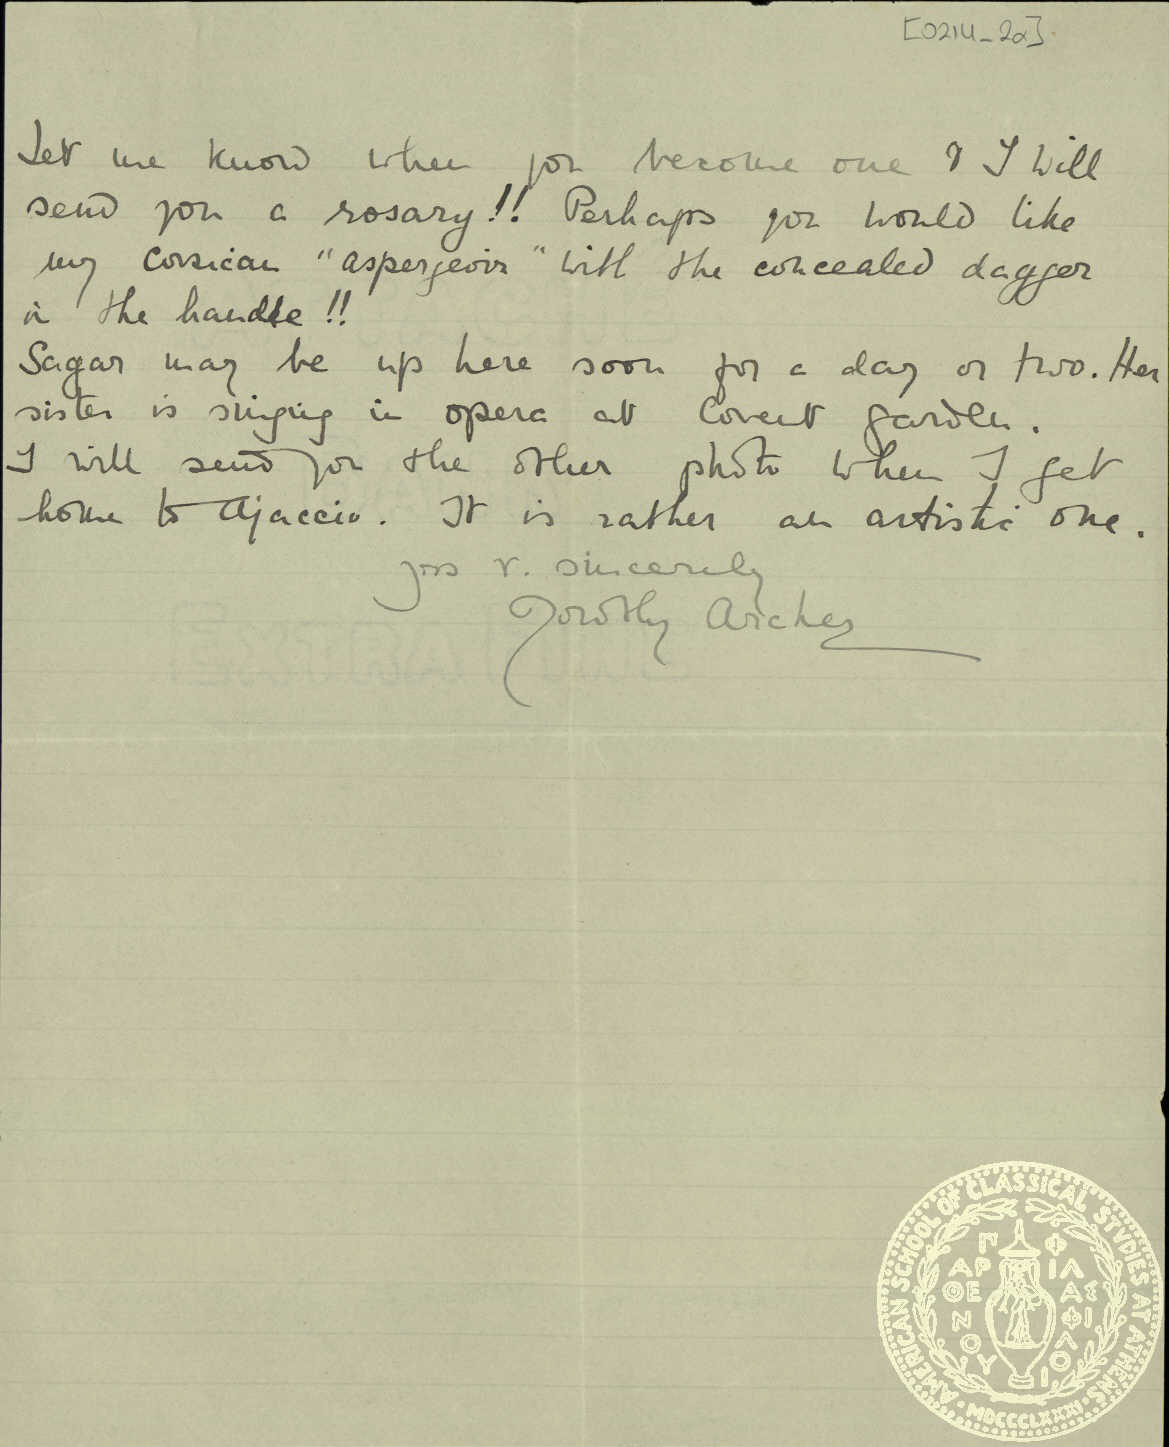 [0214_2a]
Let me know when you become one & I will
send you a rosary!! Perhaps you would like
my Corsican "aspergeoir" with the concealed dagger
in the handle!!
Sagar may be up here soon for a day or two. Her
sister is singing in opera at Covent Garden.
I will send you the other photo when I get
home to Ajaccio. It is rather an artistic one.
yrs v. sincerely
Dorothy Archer
AMERICAN SCHOOL OF CLASSICAL STVDIES AT ATHENS
ΠΑΡΘΕΝΟΥ ΦΙΛΑΣ ΦΙΛΟΙ
MDCCCLXXXI